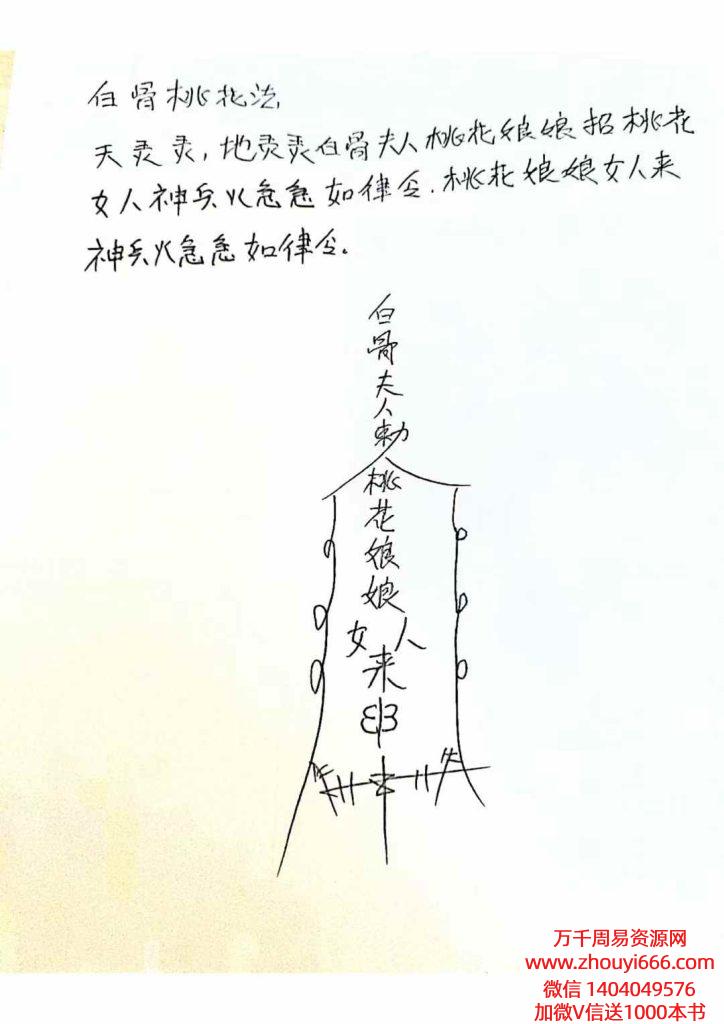 白骨桃花法,
天灵灵,地灵灵白骨夫人桃花娘娘招桃花
女人神兵火急急如律令.桃花娘娘女人来
神兵火急急如律令.
白骨夫人勅
桃花娘娘
女人
来
万千周易资源网
www.zhouyi666.com
微信 1404049576
加微V信送1000本书